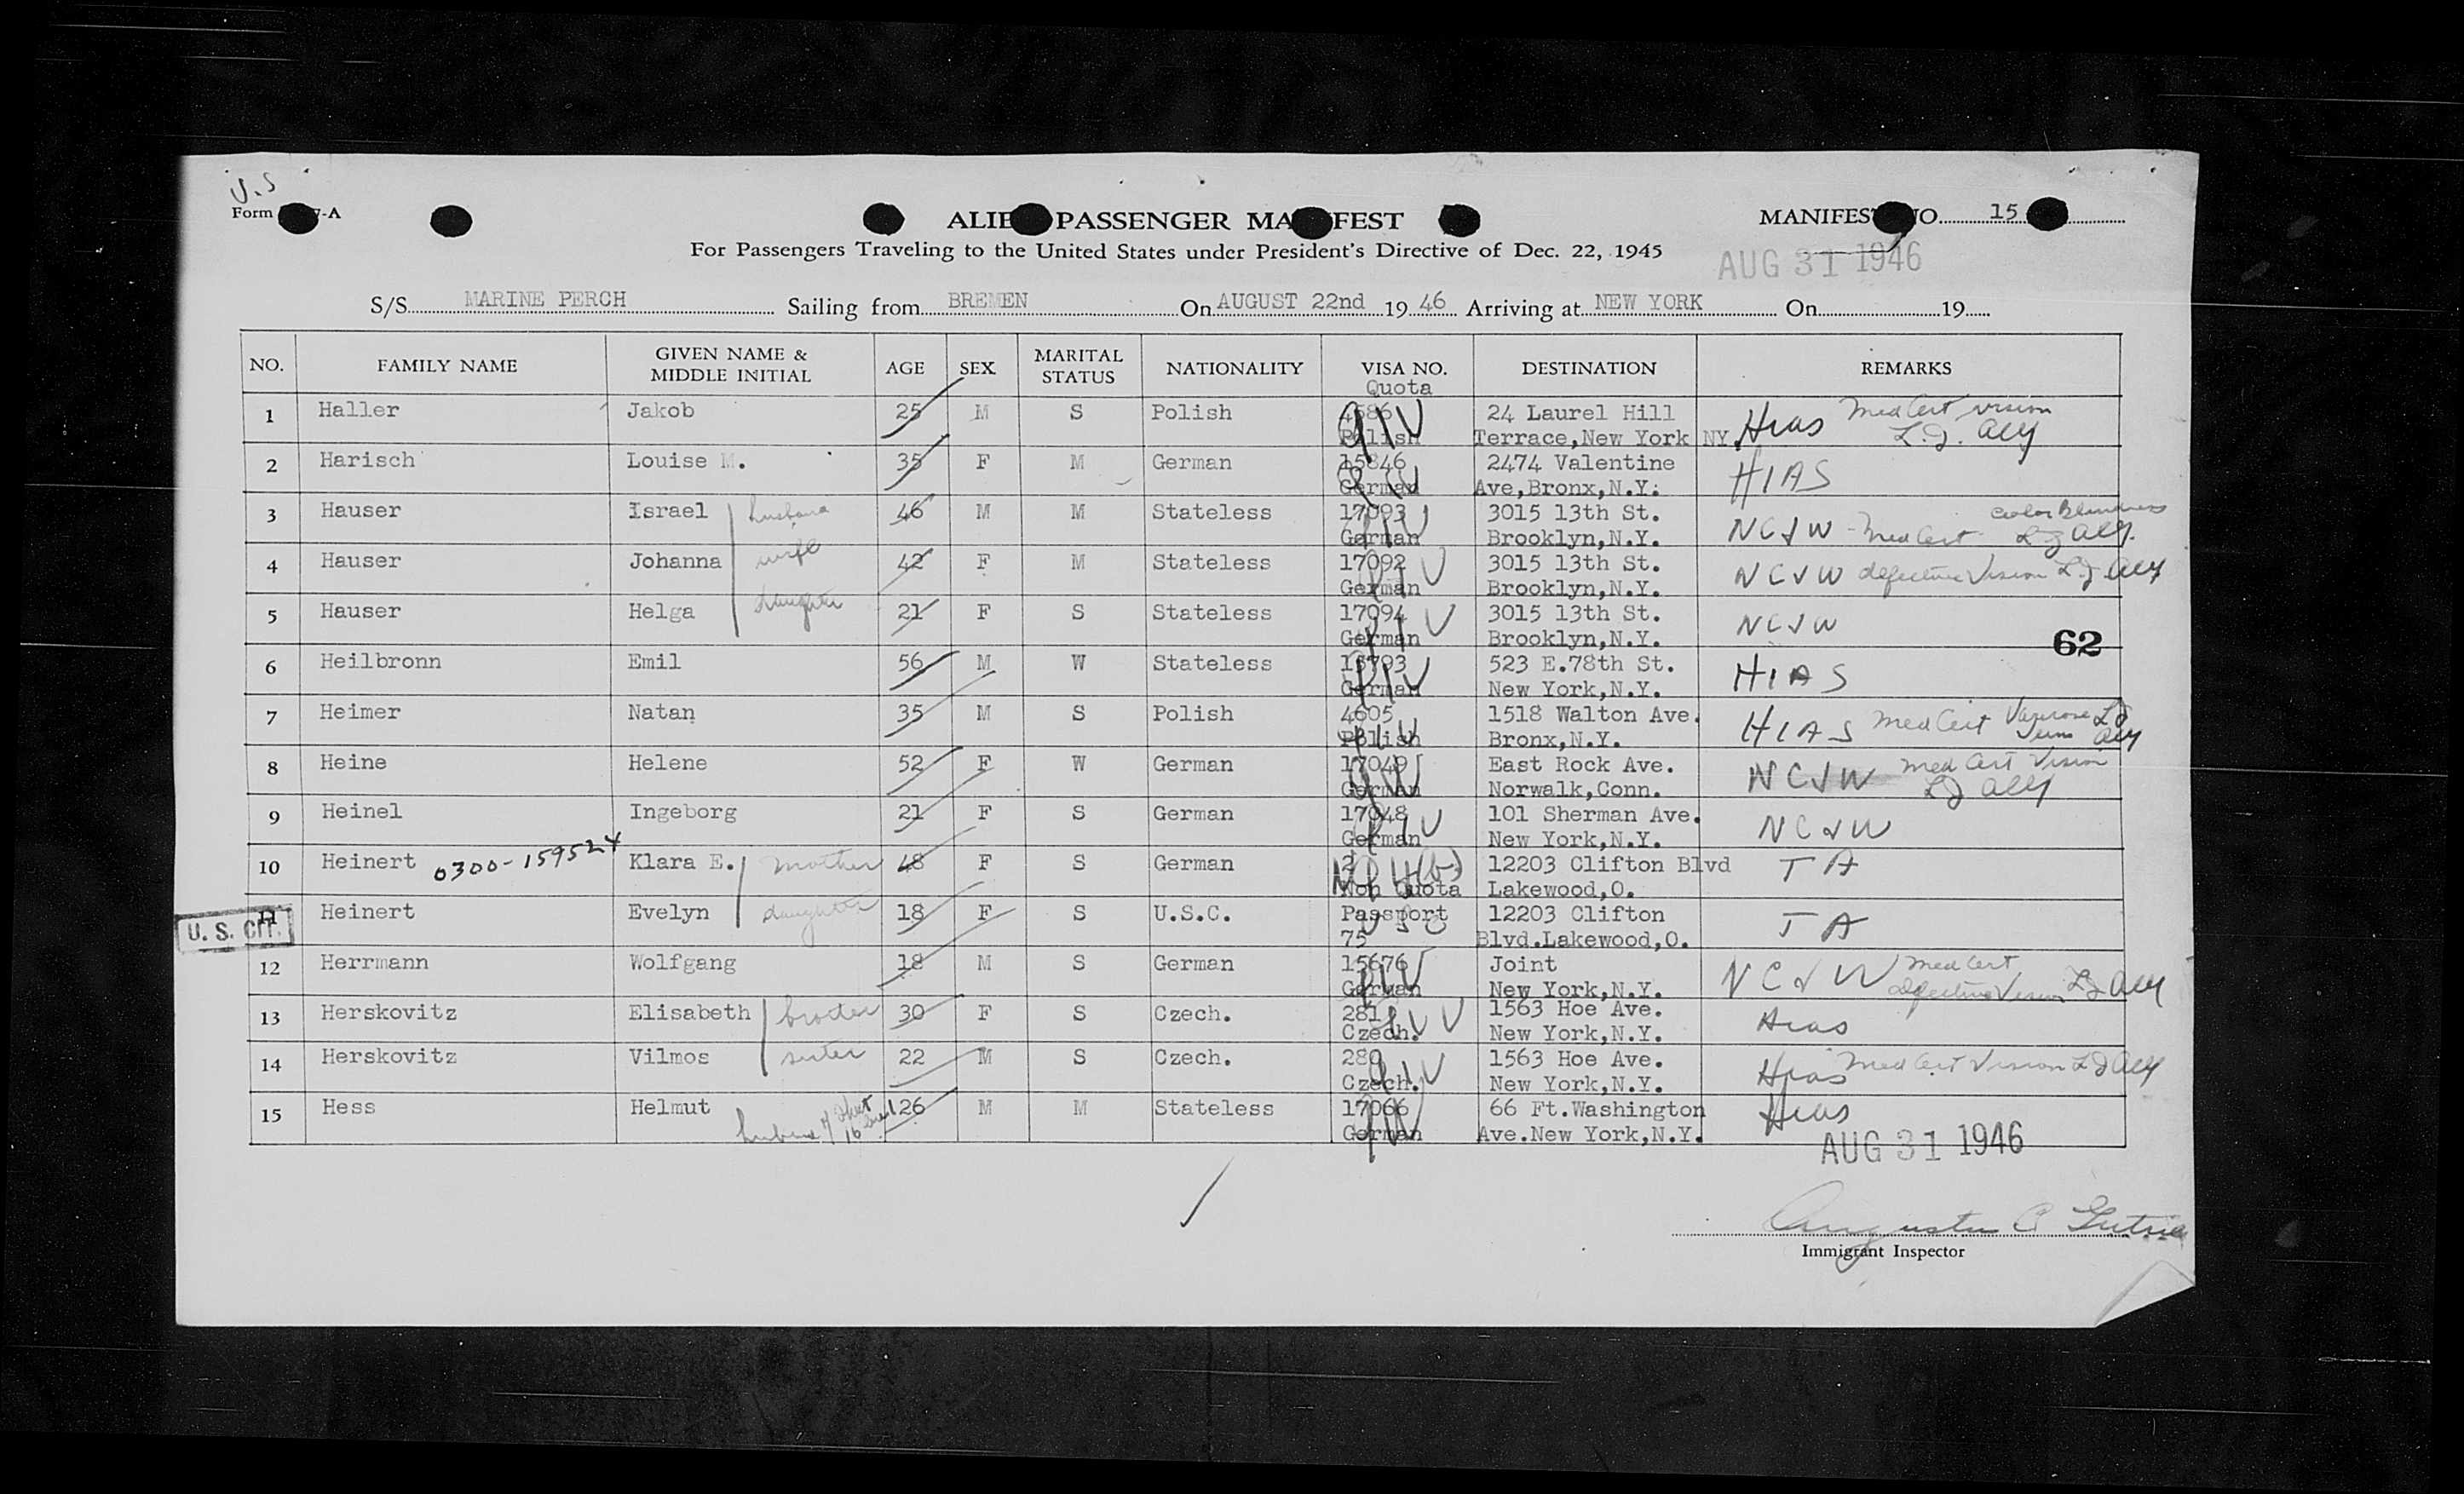 U.S
Form -A
ALIE PASSENGER MA FEST
MANIFEST NO. 15
For Passengers Traveling to the United States under President's Directive of Dec. 22, 1945
AUG 31 1946
S/S MARINE PERCH Sailing from BREMEN On AUGUST 22nd 19 46 Arriving at NEW YORK On 19
NO. FAMILY NAME GIVEN NAME & MIDDLE INITIAL AGE SEX MARITAL STATUS NATIONALITY VISA NO. DESTINATION REMARKS
Quota
1 Haller Jakob 25 M S Polish 4586 24 Laurel Hill Hias Med Cert vision
Polish Terrace,New York NY.
2 Harisch Louise M. 35 F M German 15846 2474 Valentine HIAS
German Ave,Bronx,N.Y.
3 Hauser Israel husband 46 M M Stateless 17093 3015 13th St. NCJW - Med Cert Color Blindness
German Brooklyn,N.Y.
4 Hauser Johanna wife 42 F M Stateless 17092 3015 13th St. NCJW defective Vision
German Brooklyn,N.Y.
5 Hauser Helga daughter 21 F S Stateless 17094 3015 13th St. NCJW
German Brooklyn,N.Y.
62
6 Heilbronn Emil 56 M W Stateless 523 E.78th St. HIAS
German New York,N.Y.
7 Heimer Natan 35 M S Polish 4605 1518 Walton Ave. HIAS Med Cert Varicose Veins
Polish Bronx,N.Y.
8 Heine Helene 52 F W German 17049 East Rock Ave. NCJW Med Cert Vision
German Norwalk,Conn.
9 Heinel Ingeborg 21 F S German 17048 101 Sherman Ave. NCJW
German New York,N.Y.
10 Heinert 0300-159524 Klara E. mother 48 F S German 2 12203 Clifton Blvd TA
Non Quota Lakewood,O.
11 Heinert Evelyn daughter 18 F S U.S.C. Passport 12203 Clifton TA
U. S. CIT. 75 USC Blvd.Lakewood,O.
12 Herrmann Wolfgang 18 M S German 15676 Joint NCJW Med Cert
German New York,N.Y. defective Vision
13 Herskovitz Elisabeth brother 30 F S Czech. 281 1563 Hoe Ave. Hias
Czech. New York,N.Y.
14 Herskovitz Vilmos sister 22 M S Czech. 280 1563 Hoe Ave. Hias Med Cert Vision
Czech. New York,N.Y.
15 Hess Helmut 26 M M Stateless 17066 66 Ft.Washington Hias
German Ave.New York,N.Y.
AUG 31 1946
Immigrant Inspector